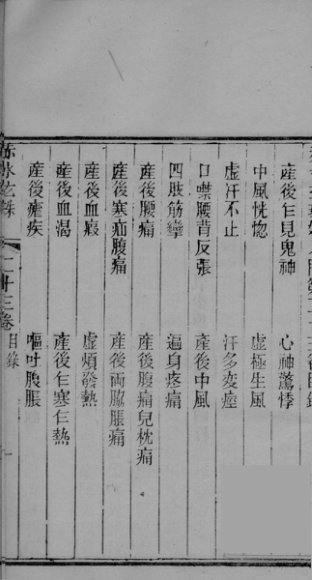 產後乍見鬼神　心神驚悸
中風恍惚　虛極生風
虛汗不止　汗多変痓
口噤腰背反張　產後中風
四肢筋攣　遍身疼痛
產後腰痛　產後腹痛兒枕痛
產後寒疝腹痛　產後兩脇脹痛
產後血瘕　虛煩發熱
產後血渴　產後乍寒乍熱
產後瘧疾　嘔吐腹脹
赤水玄珠　二十三卷　目錄　一